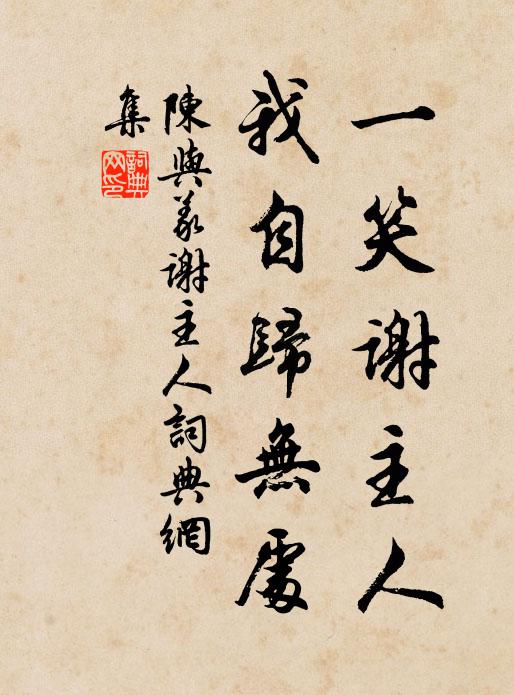 一笑謝主人
我自歸無處
陳與義謝主人詞典網
集
詞典网印